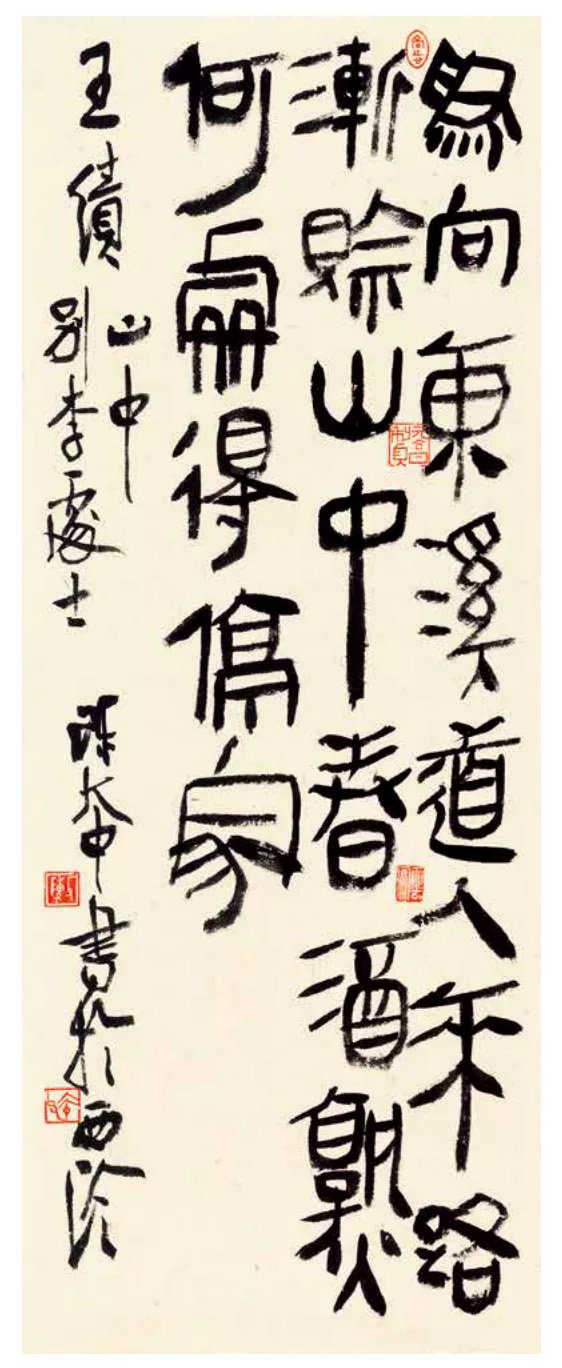 為向東溪道人來路
漸賒山中春酒熟
何處得停家
王績
山中
別李處士
陳大中書於西泠